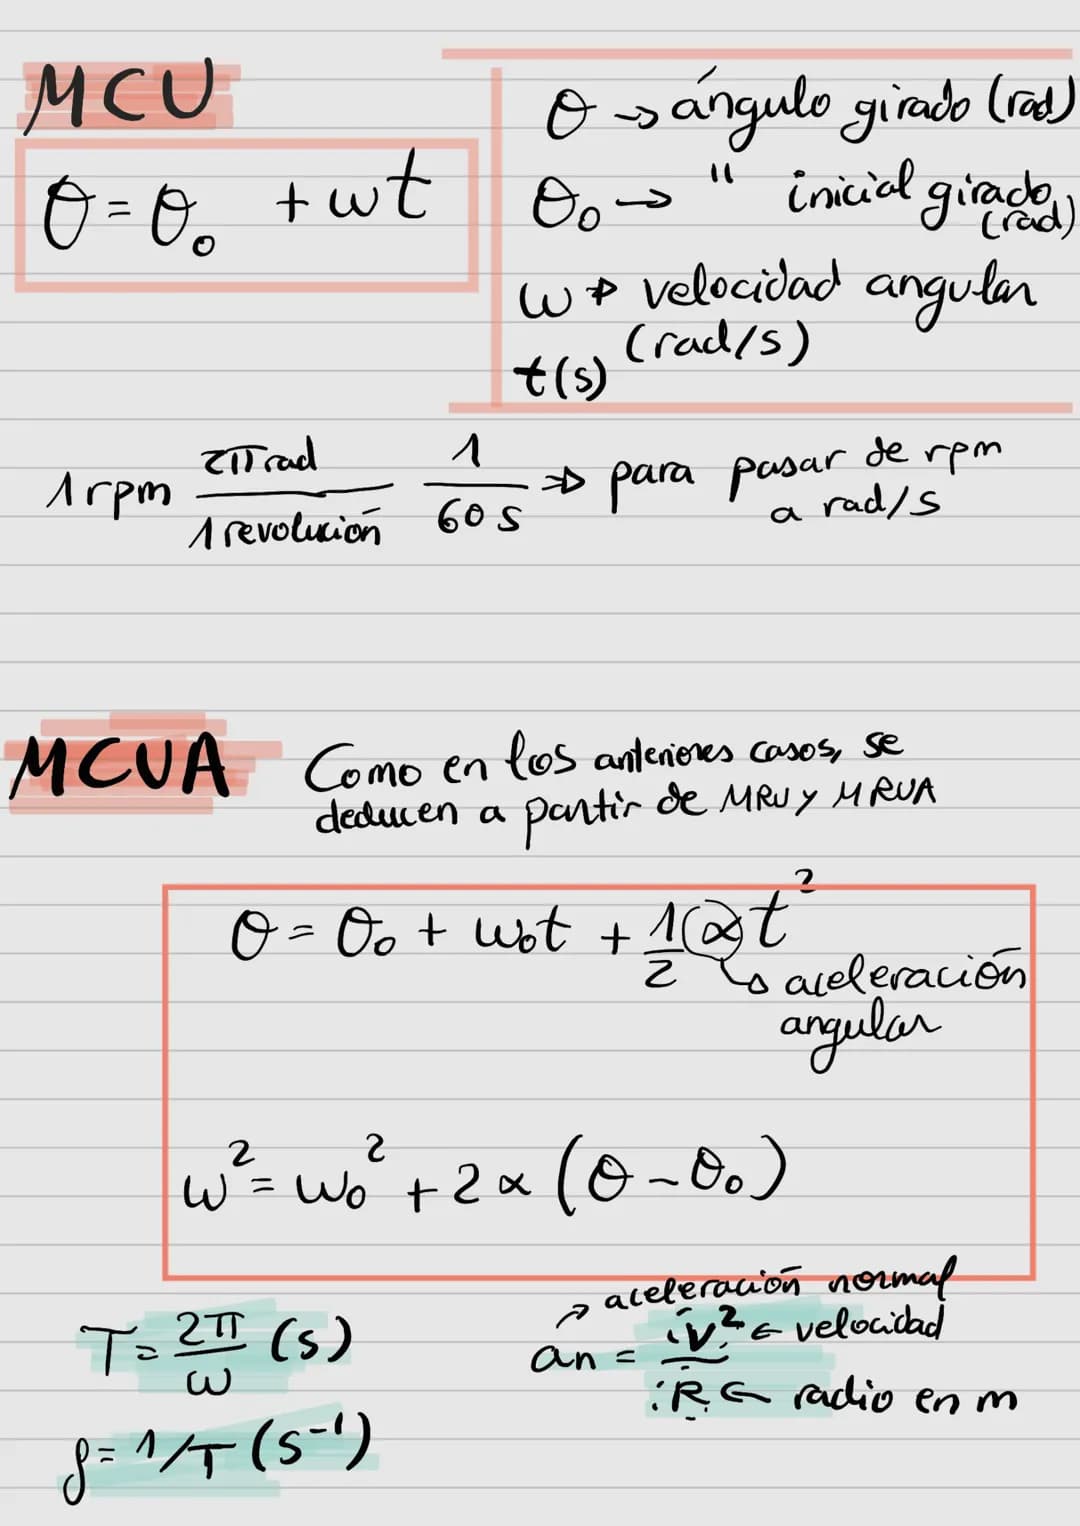 MCU
θ = θ₀ + ωt
θ → ángulo girado (rad)
θ₀ → " inicial girado (rad)
ω → velocidad angular
(rad/s)
t(s)
1 rpm 2π rad / 1 revolución 1 / 60 s ⇒ para pasar de rpm
a rad/s
MCUA
Como en los anteriores casos, se
deducen a partir de MRU y MRUA
θ = θ₀ + ω₀t + 1/2 α t²
↳ aceleración
angular
ω² = ω₀² + 2α (θ - θ₀)
T = 2π/ω (s)
f = 1/T (s⁻¹)
→ aceleración normal
an = v² ← velocidad
R ← radio en m